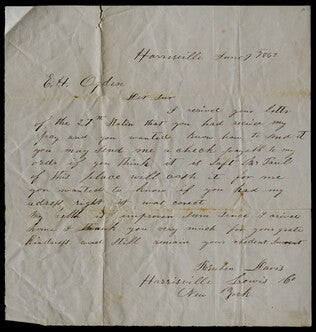 Harrisville June 9 1862
E.H. Ogden
Dear Sir
I recived your letter
of the 27th Statein that you had recive my
pay and you wanted know how to send it
you may send me a check payeble to my
order if you think it is saft Mr
of this place will cash it for me
you wanted to know if you had my
adress right it was corect
My helth is improven sum since I arived
home I thank you very much for your grate
Kindness and still remain your obedient Servent
Reuben Davis
Harrisville Lewis Co
New York